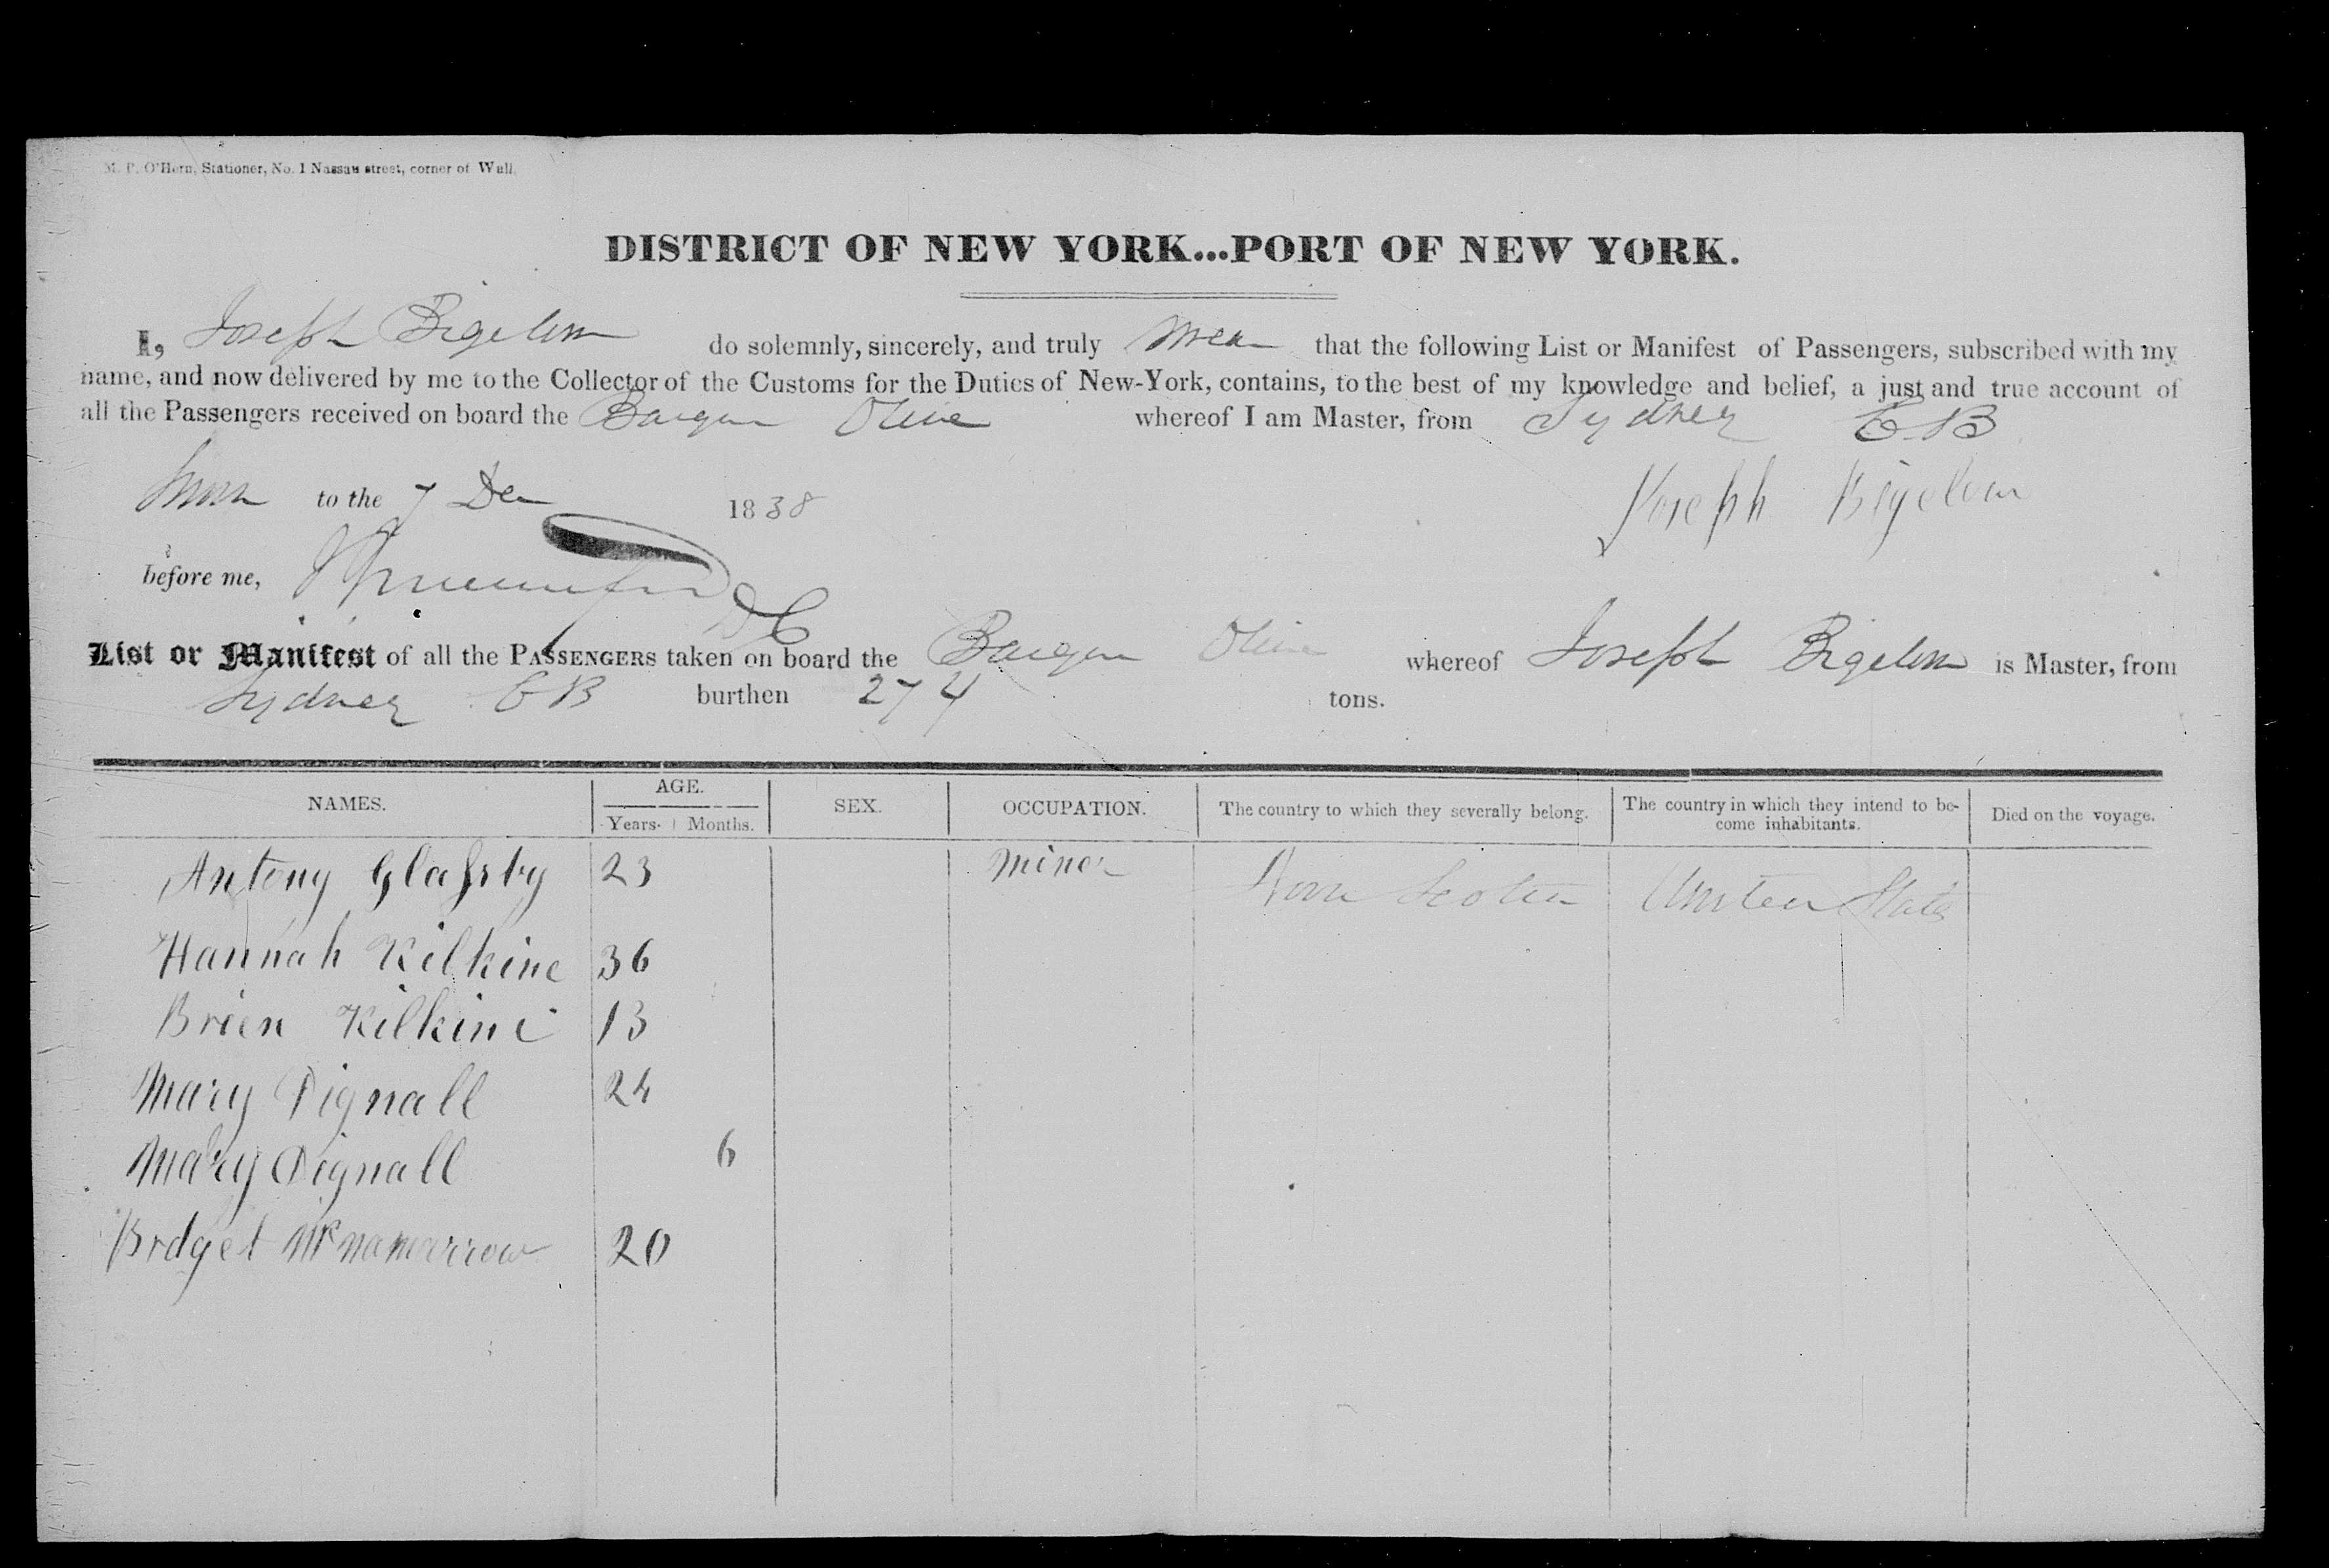 M. P. O'Hern, Stationer, No. 1 Nassau street, corner of Wall.
DISTRICT OF NEW YORK...PORT OF NEW YORK.
I, Joseph Bigelow do solemnly, sincerely, and truly swear that the following List or Manifest of Passengers, subscribed with my
name, and now delivered by me to the Collector of the Customs for the Duties of New-York, contains, to the best of my knowledge and belief, a just and true account of
all the Passengers received on board the Barque Olive whereof I am Master, from Sydney CB
Sworn to the 7 Dec 1838 Joseph Bigelow
before me, DC
List or Manifest of all the PASSENGERS taken on board the Barque Olive whereof Joseph Bigelow is Master, from
Sydney CB burthen 274 tons.
NAMES. AGE. Years. Months. SEX. OCCUPATION. The country to which they severally belong. The country in which they intend to be-come inhabitants. Died on the voyage.
Antony Glassby 23 miner Nova Scotia United States
Hannah Kilkine 36
Brien Kilkine 13
Mary Dignall 24
Mary Dignall 6
Brdget McNamorrow 20